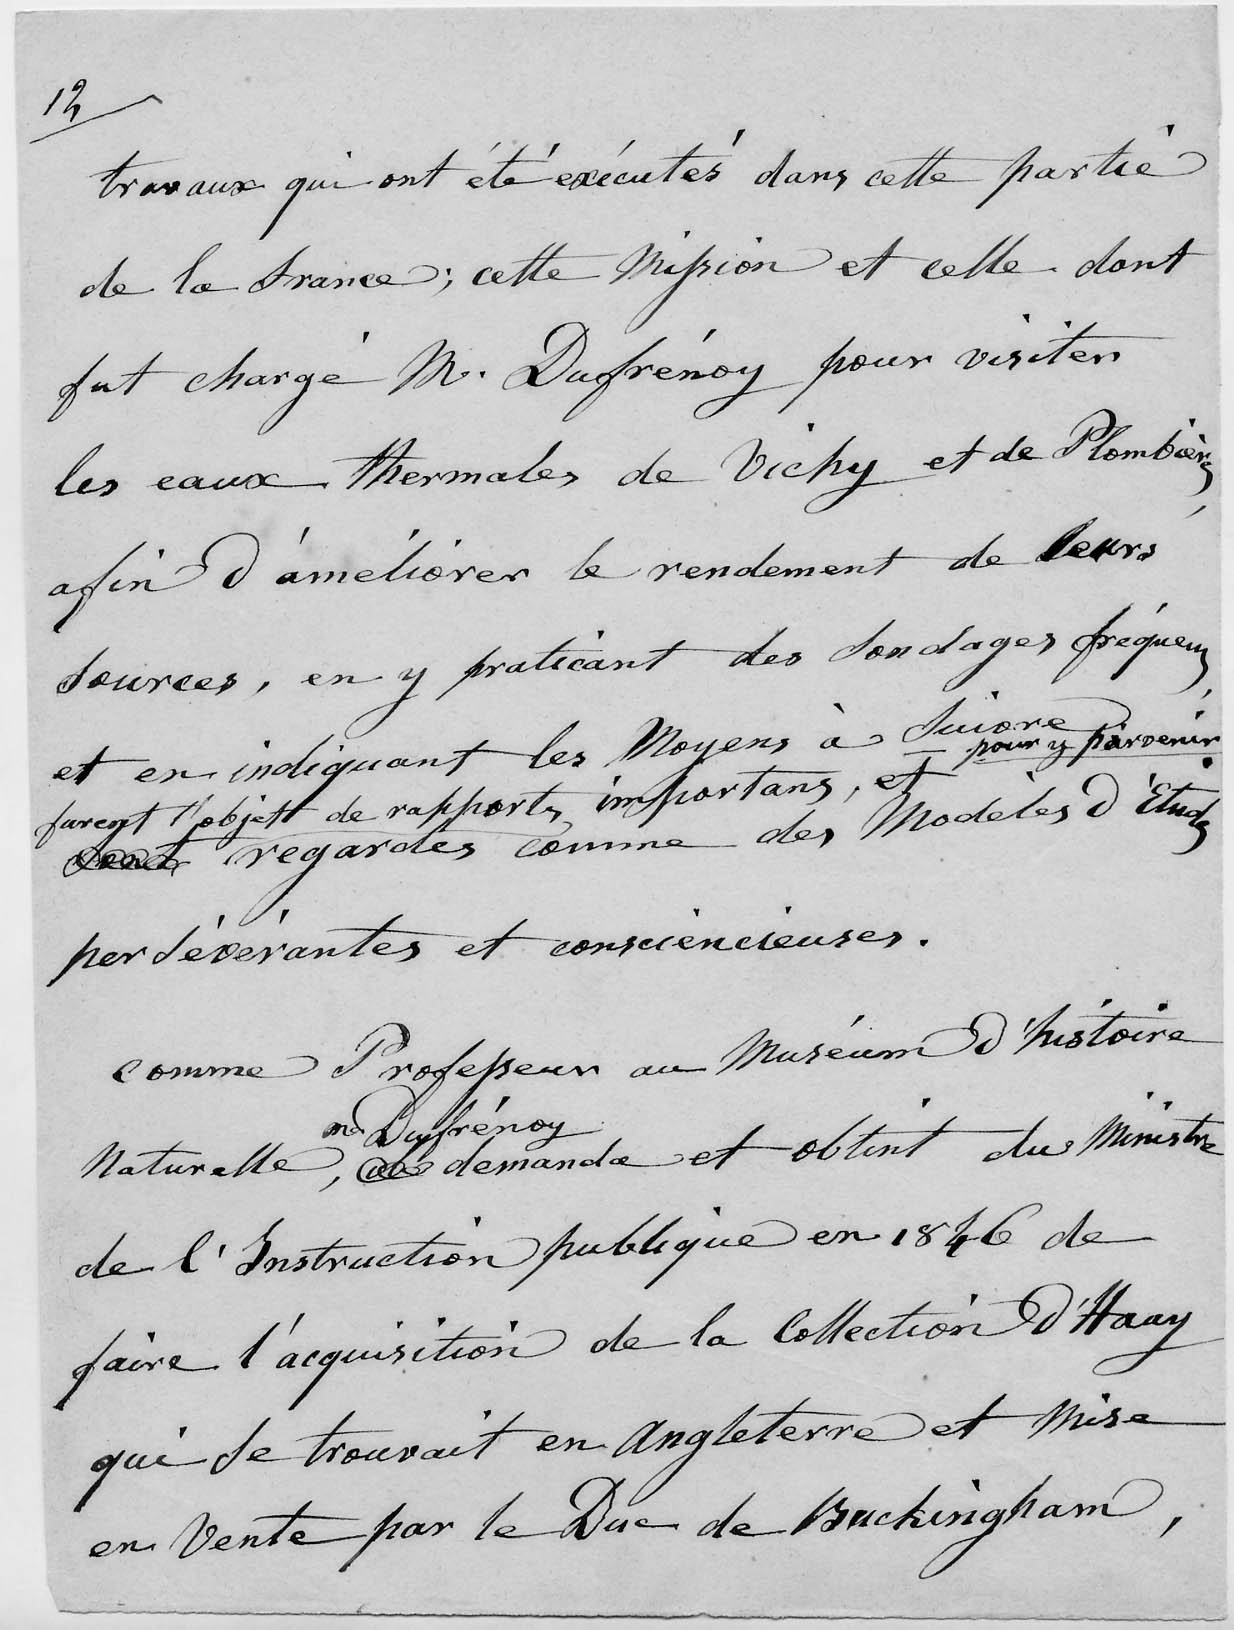 12
travaux qui ont été exécutés dans cette partie
de la france; cette Mission et celle dont
fut chargé M. Dufrénoy pour visiter
les eaux thermales de Vichy et de Plombières,
afin d'améliorer le rendement de leurs
sources, en y praticant des sondages fréquens,
et en indiquant les Moyens à suivre
pour y parvenir
furent l'objet de rapports importans, et
regardés comme des Modèles d'Etudes
persévérantes et consciencieuses.
comme Professeur au Muséum d'histoire
mr Dufrénoy
Naturelle, demanda et obtint du Ministre
de l'Instruction publique en 1846 de
faire l'acquisition de la Collection d'Hauy
qui se trouvait en Angleterre et Mise
en Vente par le Duc de Buckingham,